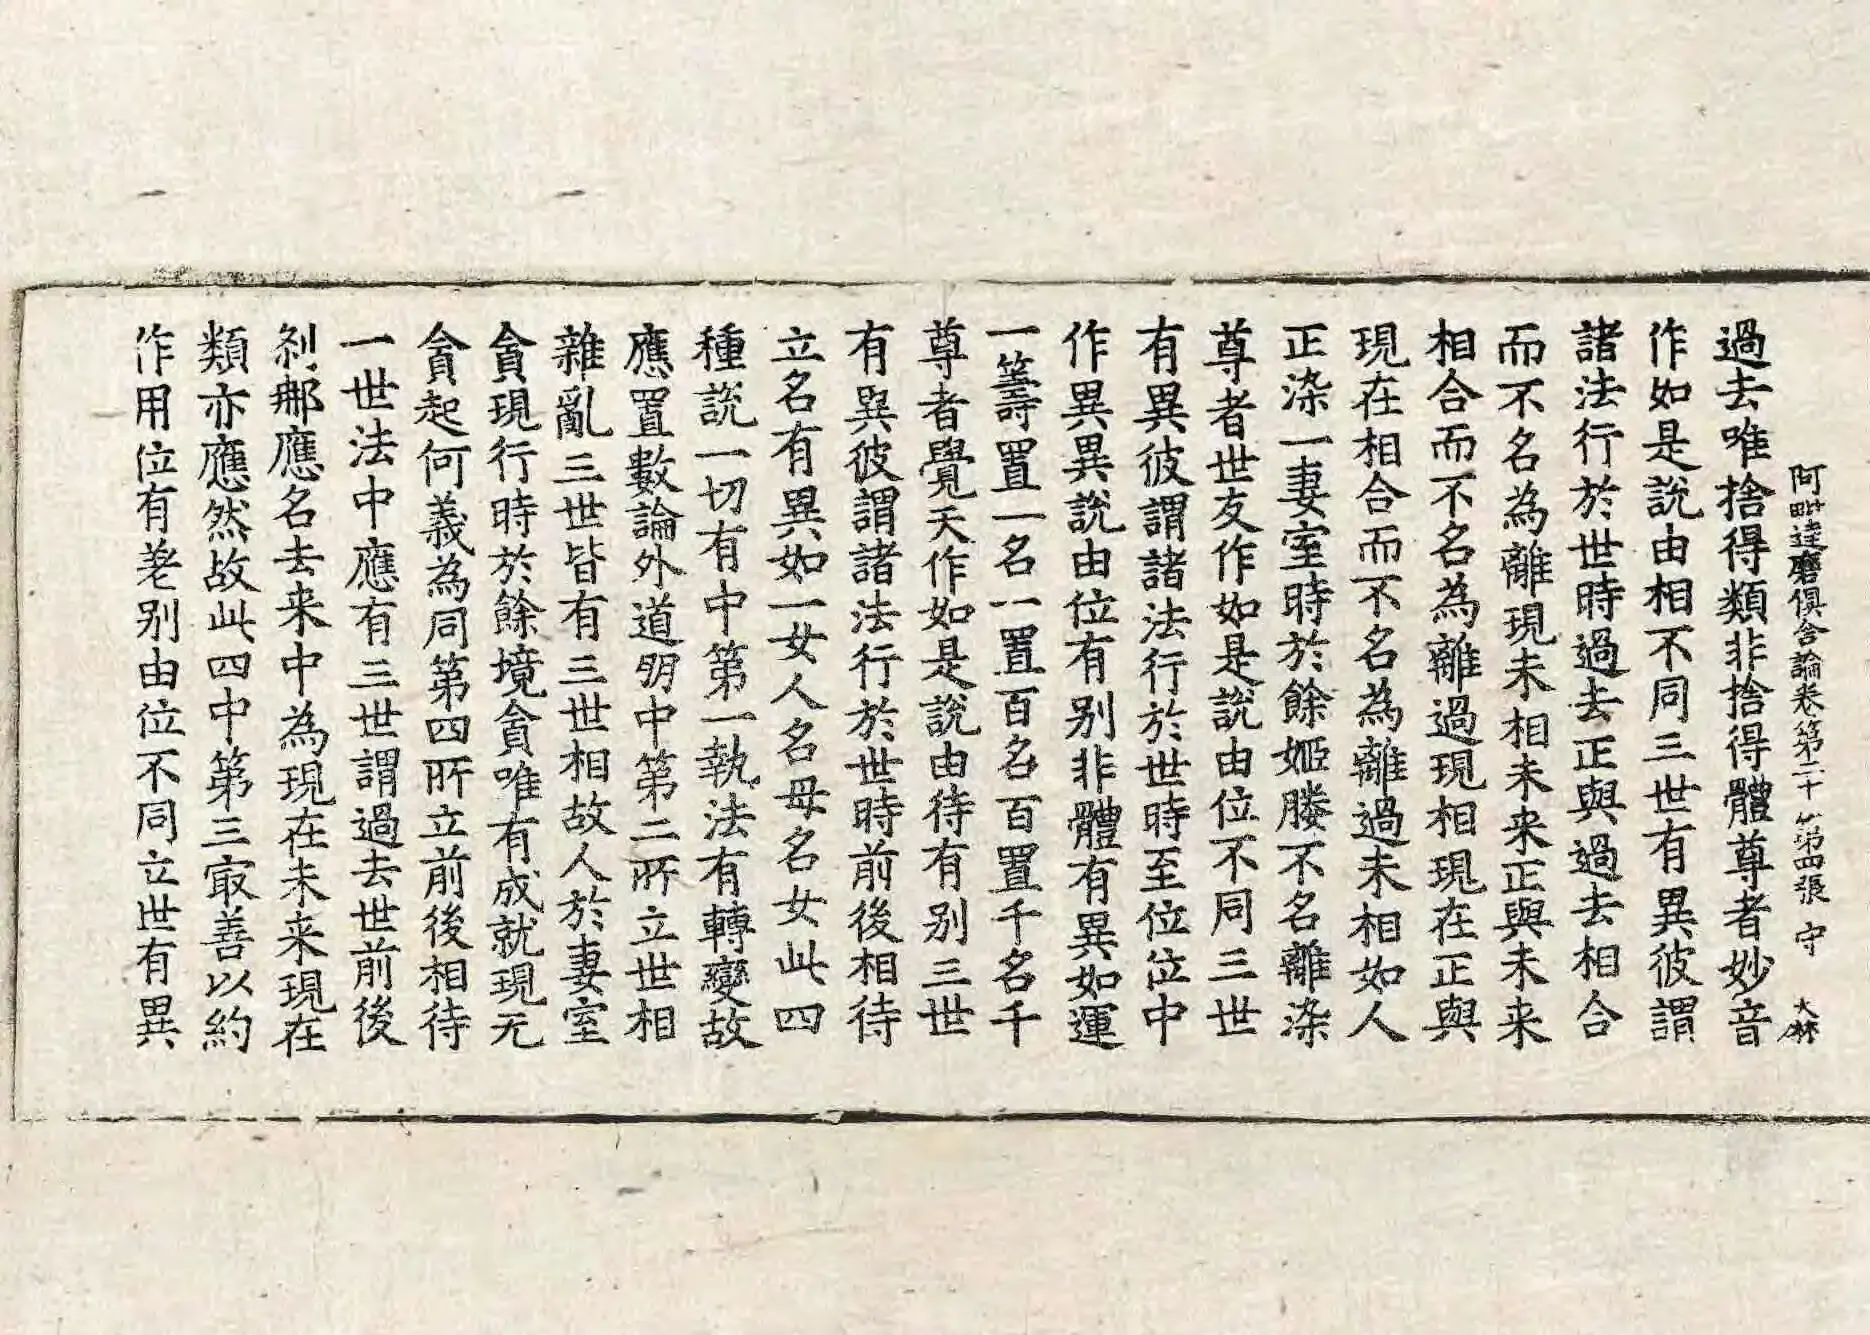 阿毗達磨俱舍論卷第二十 第四張 守 大林
過去唯捨得類非捨得體尊者妙音
作如是說由相不同三世有異彼謂
諸法行於世時過去正與過去相合
而不名為離現未相未来正與未来
相合而不名為離過現相現在正與
現在相合而不名為離過未相如人
正染一妻室時於餘姬媵不名離染
尊者世友作如是說由位不同三世
有異彼謂諸法行於世時至位位中
作異異說由位有别非體有異如運
一籌置一名一置百名百置千名千
尊者覺天作如是說由待有别三世
有異彼謂諸法行於世時前後相待
立名有異如一女人名母名女此四
種說一切有中第一執法有轉變故
應置數論外道明中第二所立世相
雜亂三世皆有三世相故人於妻室
貪現行時於餘境貪唯有成就現无
貪起何義為同第四所立前後相待
一世法中應有三世謂過去世前後
刹那應名去来中為現在未来現在
類亦應然故此四中第三寂善以約
作用位有差别由位不同立世有異